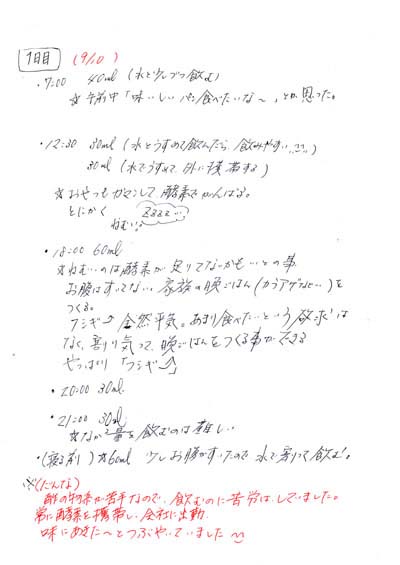 1日目 (9/10)
・7:00 40ml (水で少しづつ飲む)
☆午前中「味しい パン食べたいな〜」とか思った。
・12:30 30ml (水でうすめて飲んだら、飲みやすい)
30ml (水でうすめて、外に携帯する)
☆おやつもガマンして酵素でがんばる。
とにかく ねむい Zzzz…
・18:00 60ml
☆ねむいのは酵素が足りてないかも…との事
お腹はすいてない。家族の晩ごはん(カラアゲなど…)を
つくる。
フシギ 全然平気。あまり食べたいという欲求は
なく、割り切って、晩ごはんをつくる事ができる
やっぱり「フシギ」
・20:00 30ml
・21:00 30ml
☆量を飲むのは難しい
・(寝る前) ☆60ml 少しお腹がすいたので 水で割って飲む。
※(だんな)
酢の物系が苦手なので、飲むのに苦労はしていました。
常に酵素を携帯し、会社に出勤
味にあきた〜とつぶやいていました